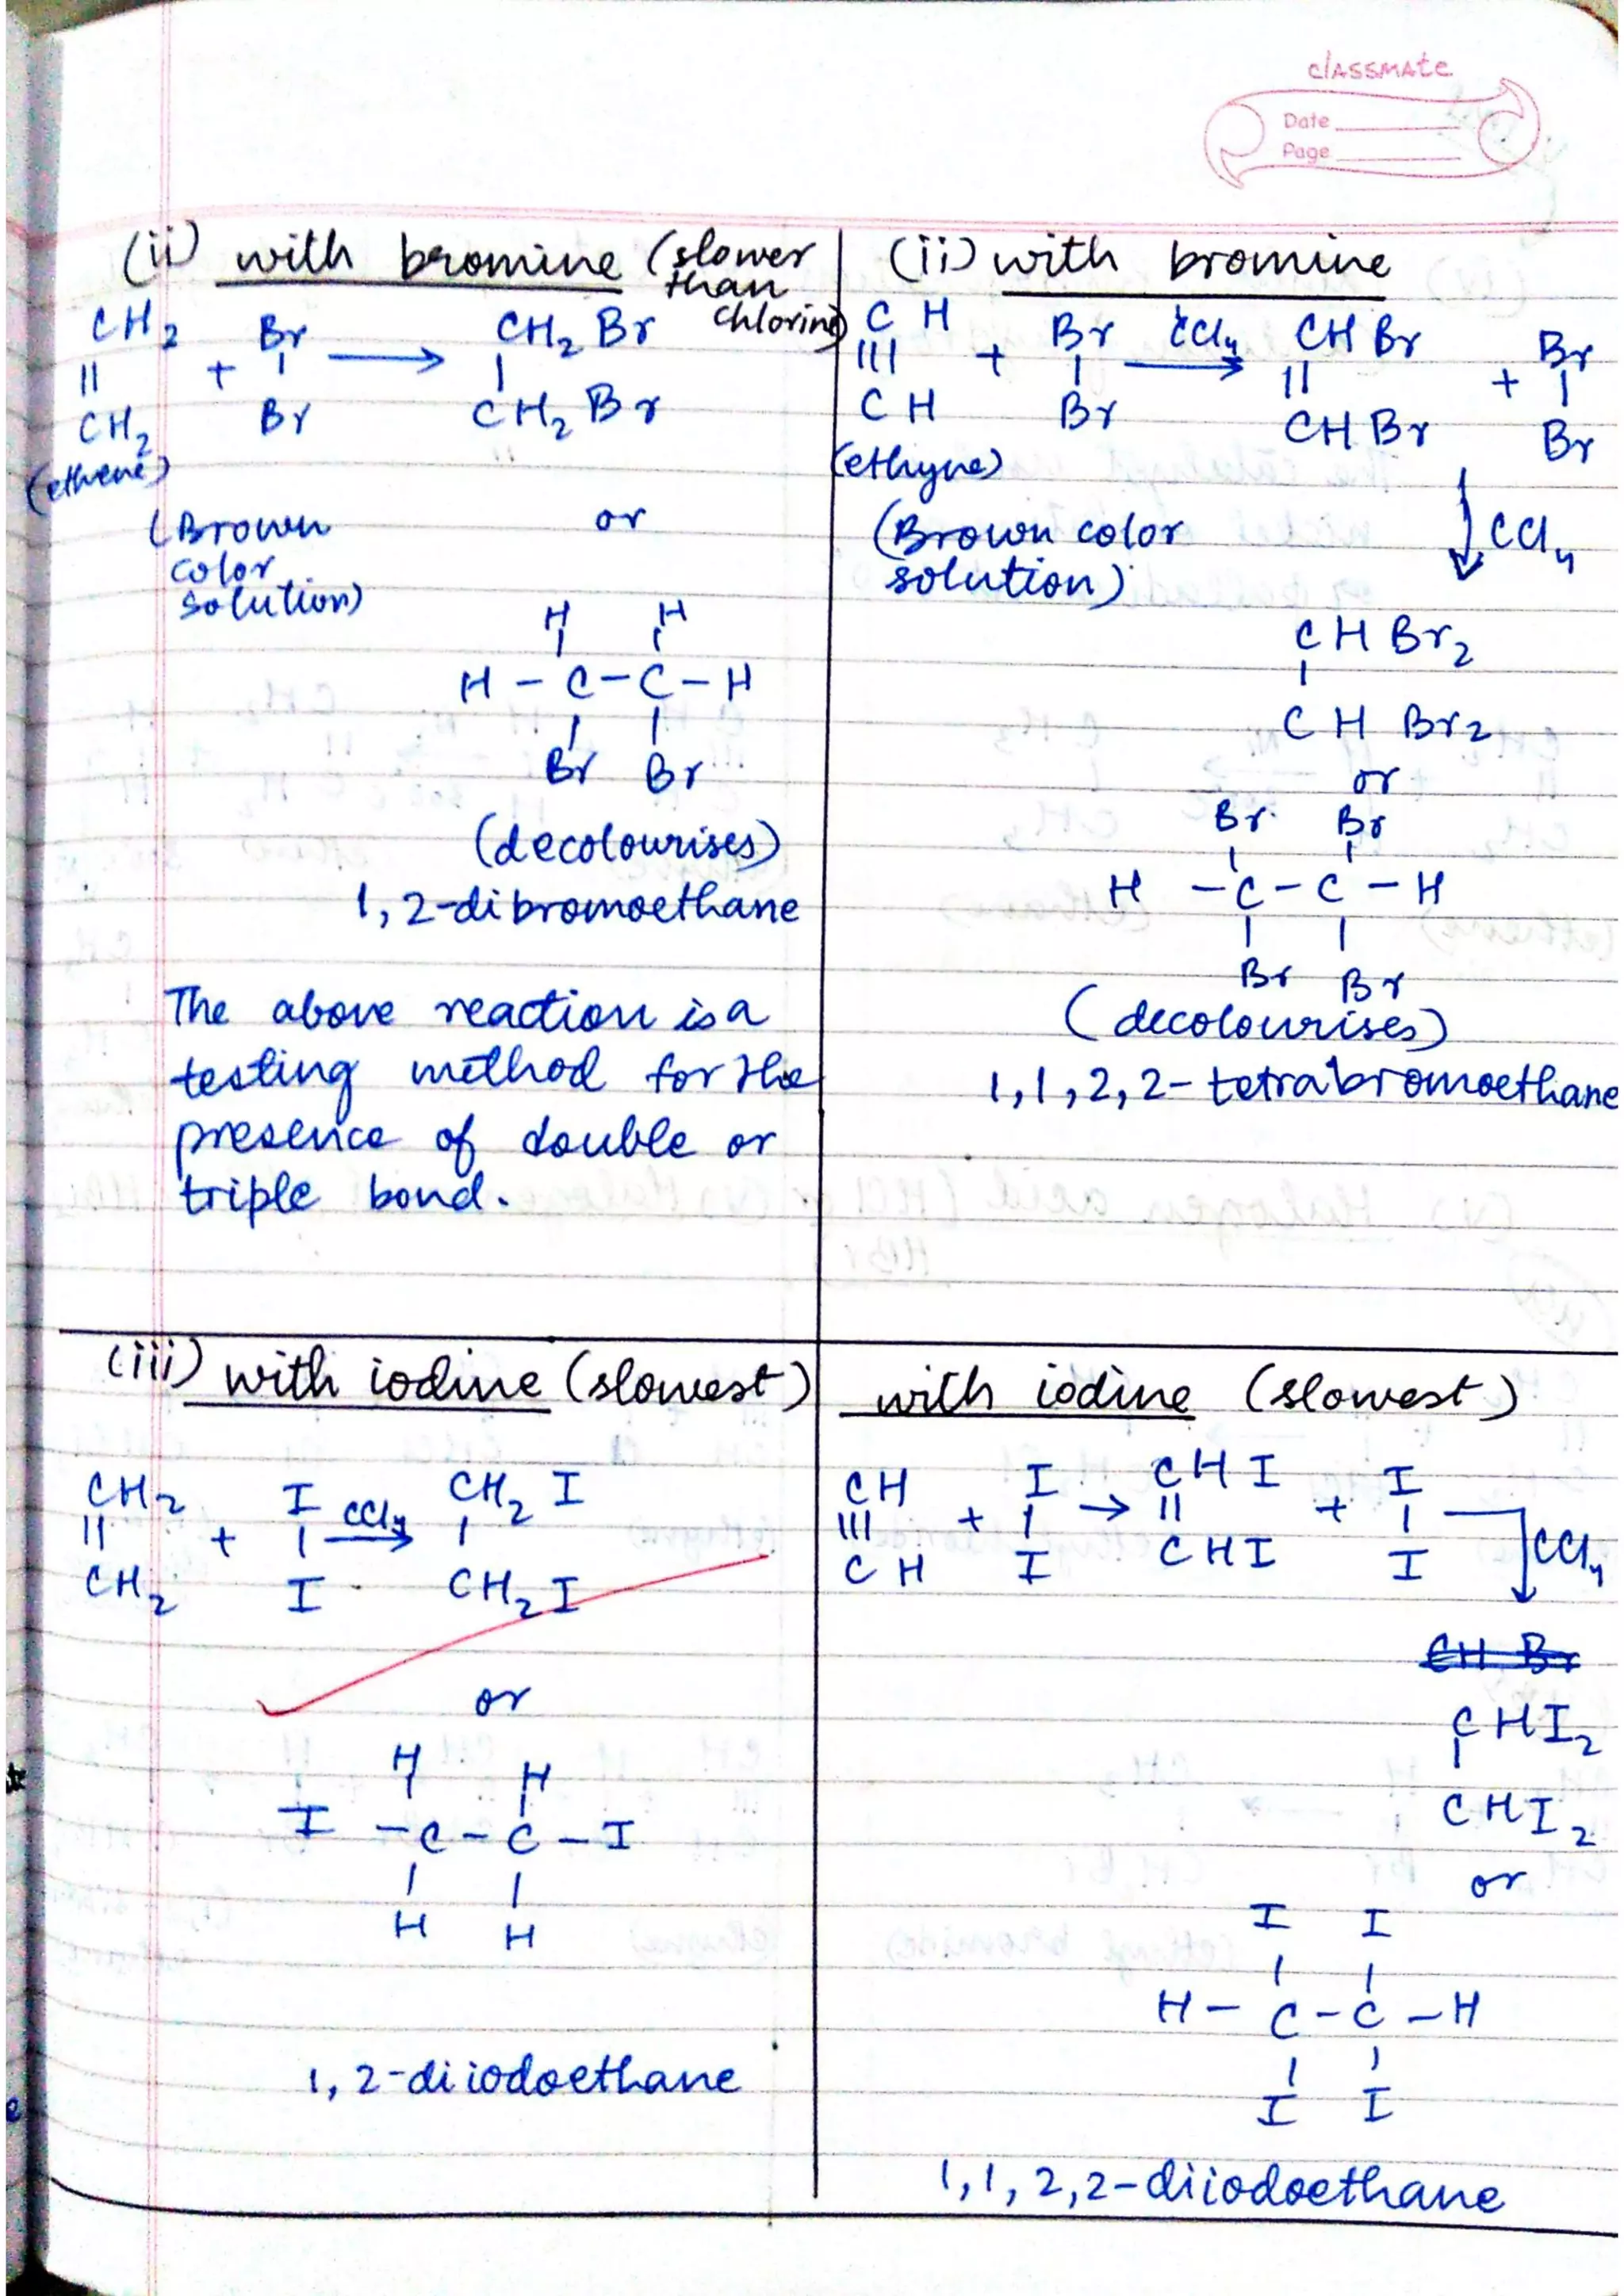 classmate
Date
Page
(ii) with bromine (slower than chlorine)
CH2 Br CH2 Br
|| + | ⟶ |
CH2 Br CH2 Br
(ethene)
(Brown color solution)
or
H H
| |
H - C - C - H
| |
Br Br
(decolourises)
1, 2-dibromoethane
The above reaction is a
testing method for the
presence of double or
triple bond.
(ii) with bromine
CH Br CCl4 CHBr Br
||| + | ⟶ || + |
CH Br CHBr Br
(ethyne)
(Brown color
solution)
↓ CCl4
CHBr2
|
CHBr2
or
Br Br
| |
H - C - C - H
| |
Br Br
(decolourises)
1,1,2,2- tetrabromoethane
(iii) with iodine (slowest)
CH2 I CCl4 CH2 I
|| + | ⟶ |
CH2 I CH2 I
or
H H
| |
I - C - C - I
| |
H H
1, 2-diiodoethane
with iodine (slowest)
CH I CHI I
||| + | → || + |
CH I CHI I
↓ CCl4
CH Br
CHI2
|
CHI2
or
I I
| |
H - C - C - H
| |
I I
1,1,2,2-diiodoethane